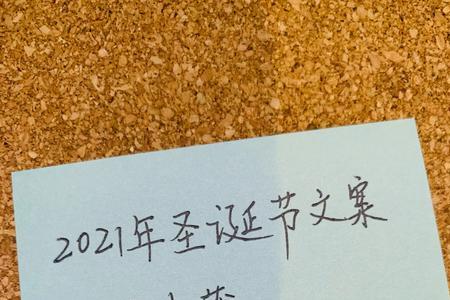 2021年圣诞节文案